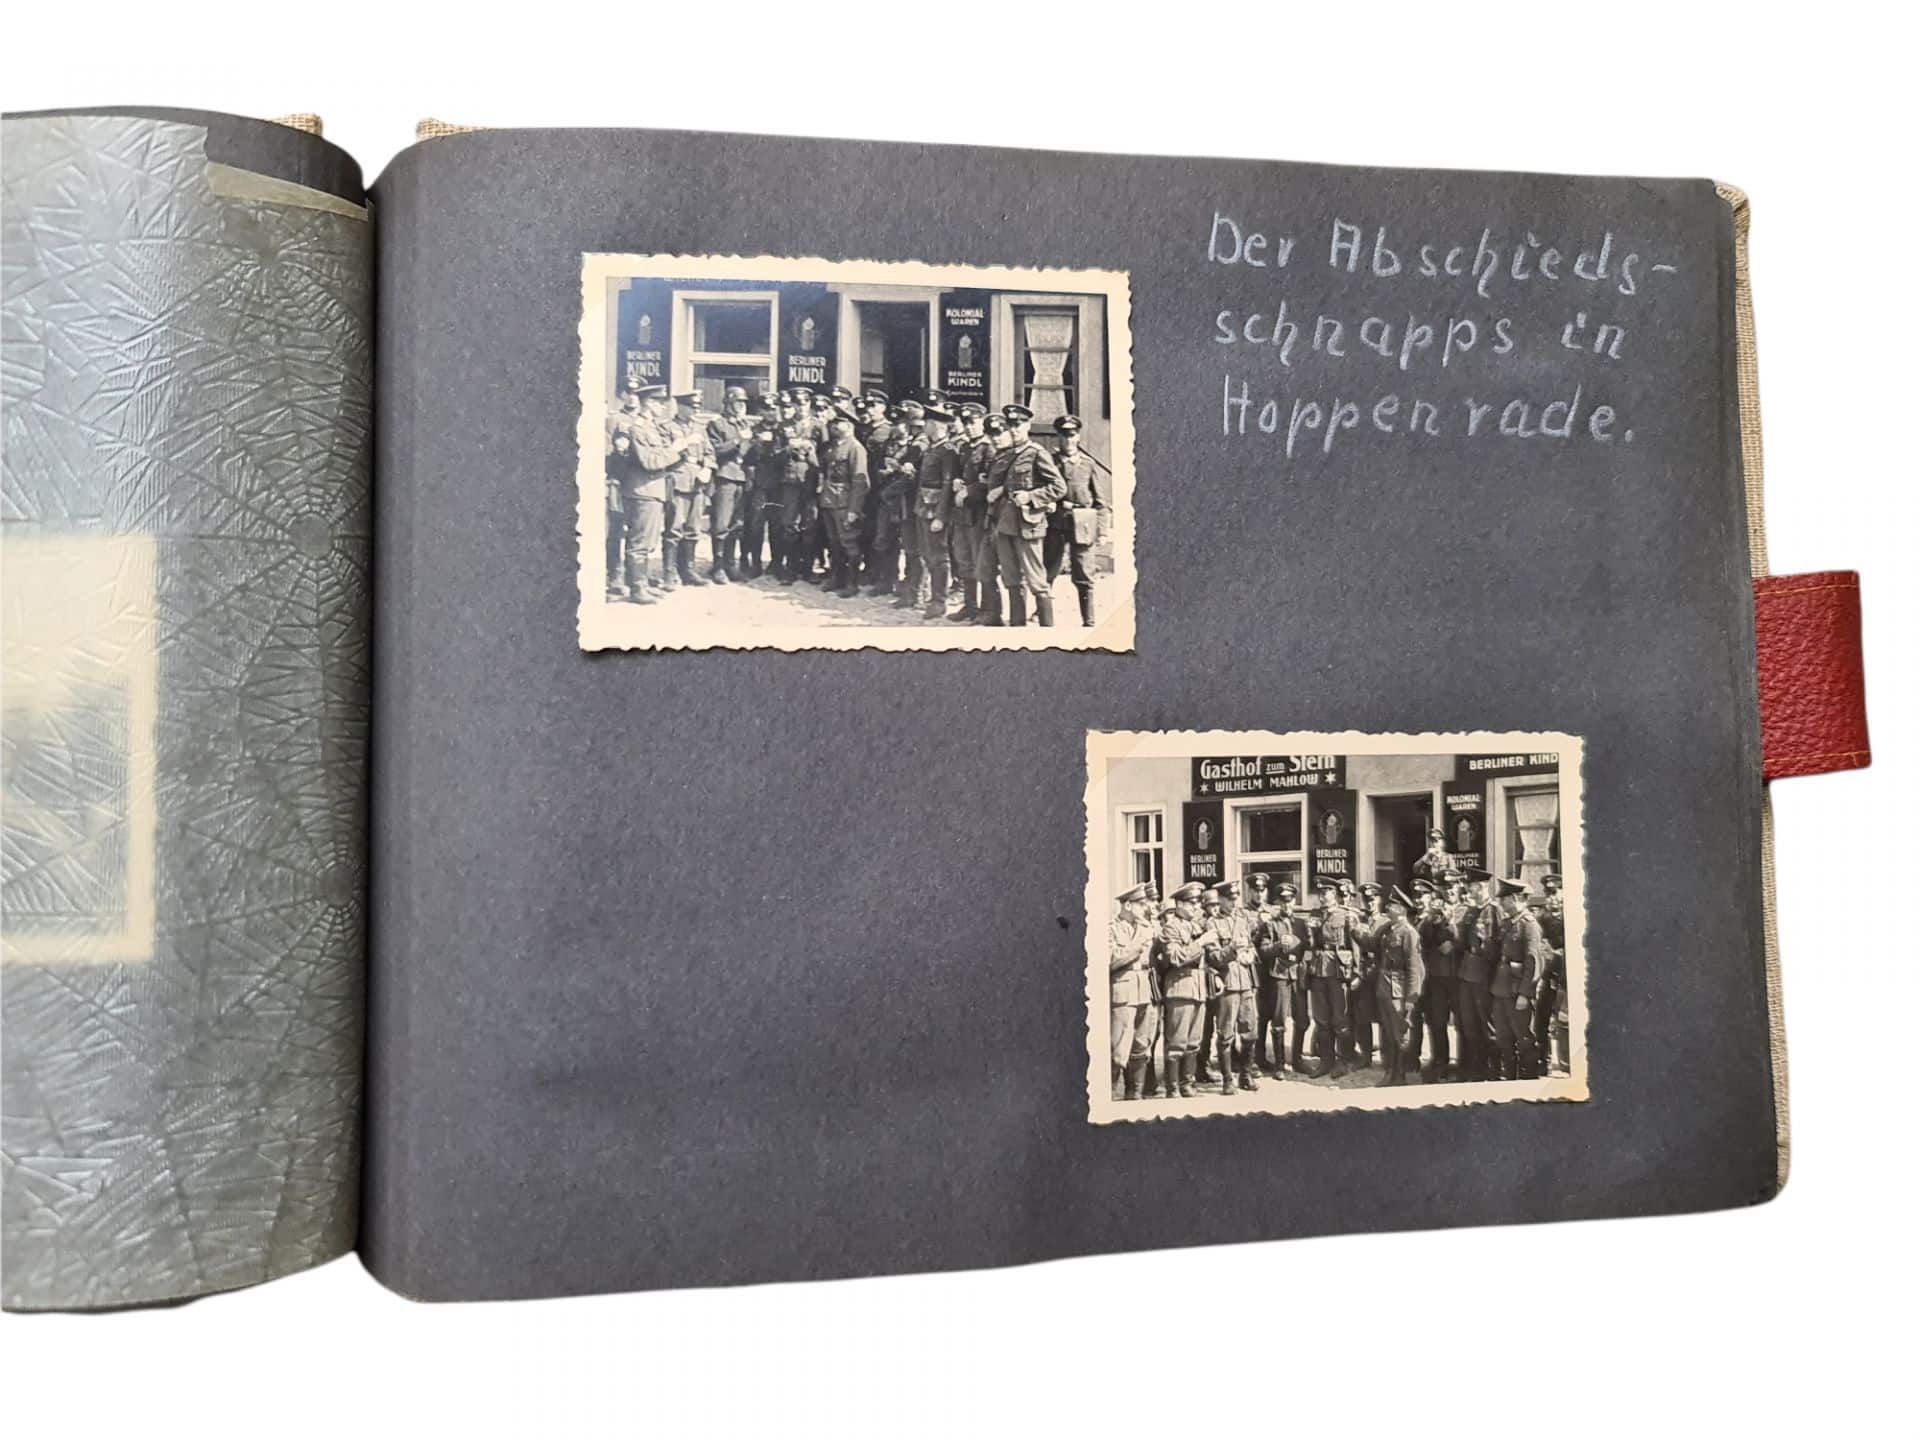 Der Abschieds-
schnapps in
Hoppenrade.
BERLINER
KINDL
BERLINER
KINDL
KOLONIAL
WAREN
BERLINER
KINDL
Gasthof zum Stern
* WILHELM MAHLOW *
BERLINER KIND
BERLINER
KINDL
BERLINER
KINDL
KOLONIAL
WAREN
BERLINER
KINDL